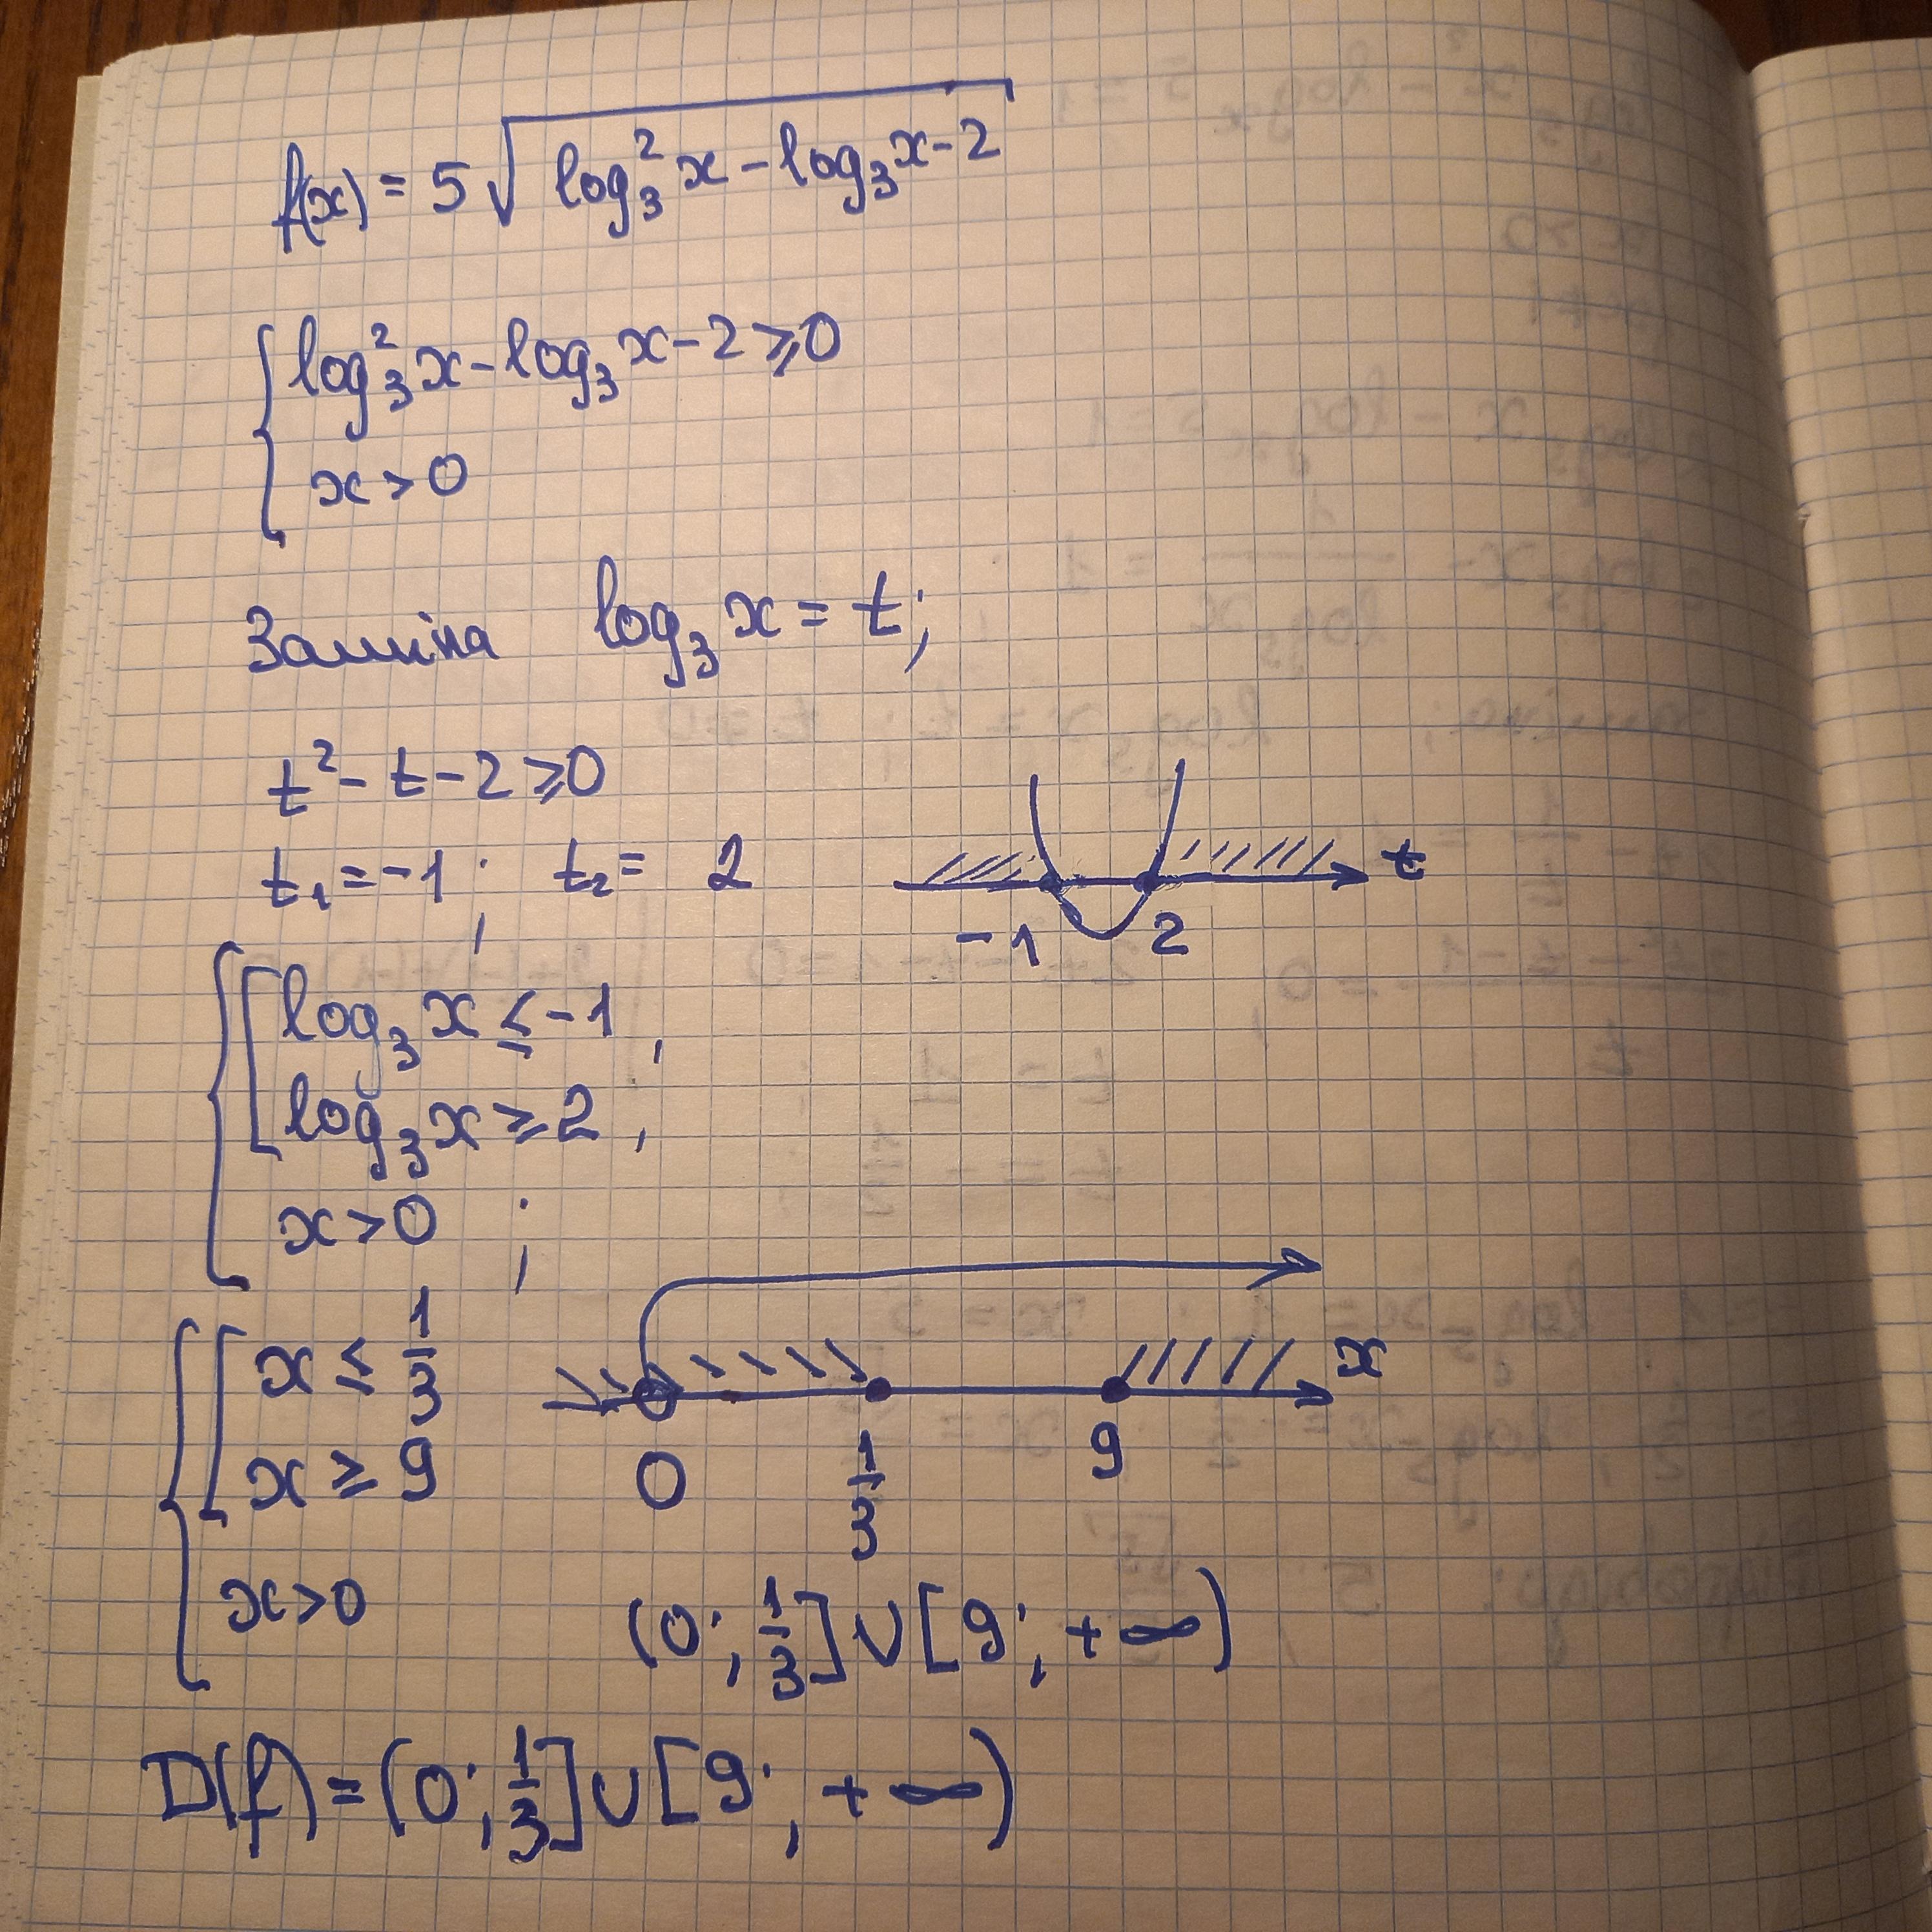 f(x) = 5√(log₃²x - log₃x - 2)
{ log₃²x - log₃x - 2 ⩾ 0
x > 0
Заміна log₃x = t;
t² - t - 2 ⩾ 0
t₁ = -1; t₂ = 2
-1 2 t
{ [ log₃x ≤ -1,
log₃x ≥ 2,
x > 0 ;
{ [ x ≤ 1/3
x ≥ 9
x > 0
0 1/3 9 x
(0; 1/3] ∪ [9; +∞)
D(f) = (0; 1/3] ∪ [9; +∞)